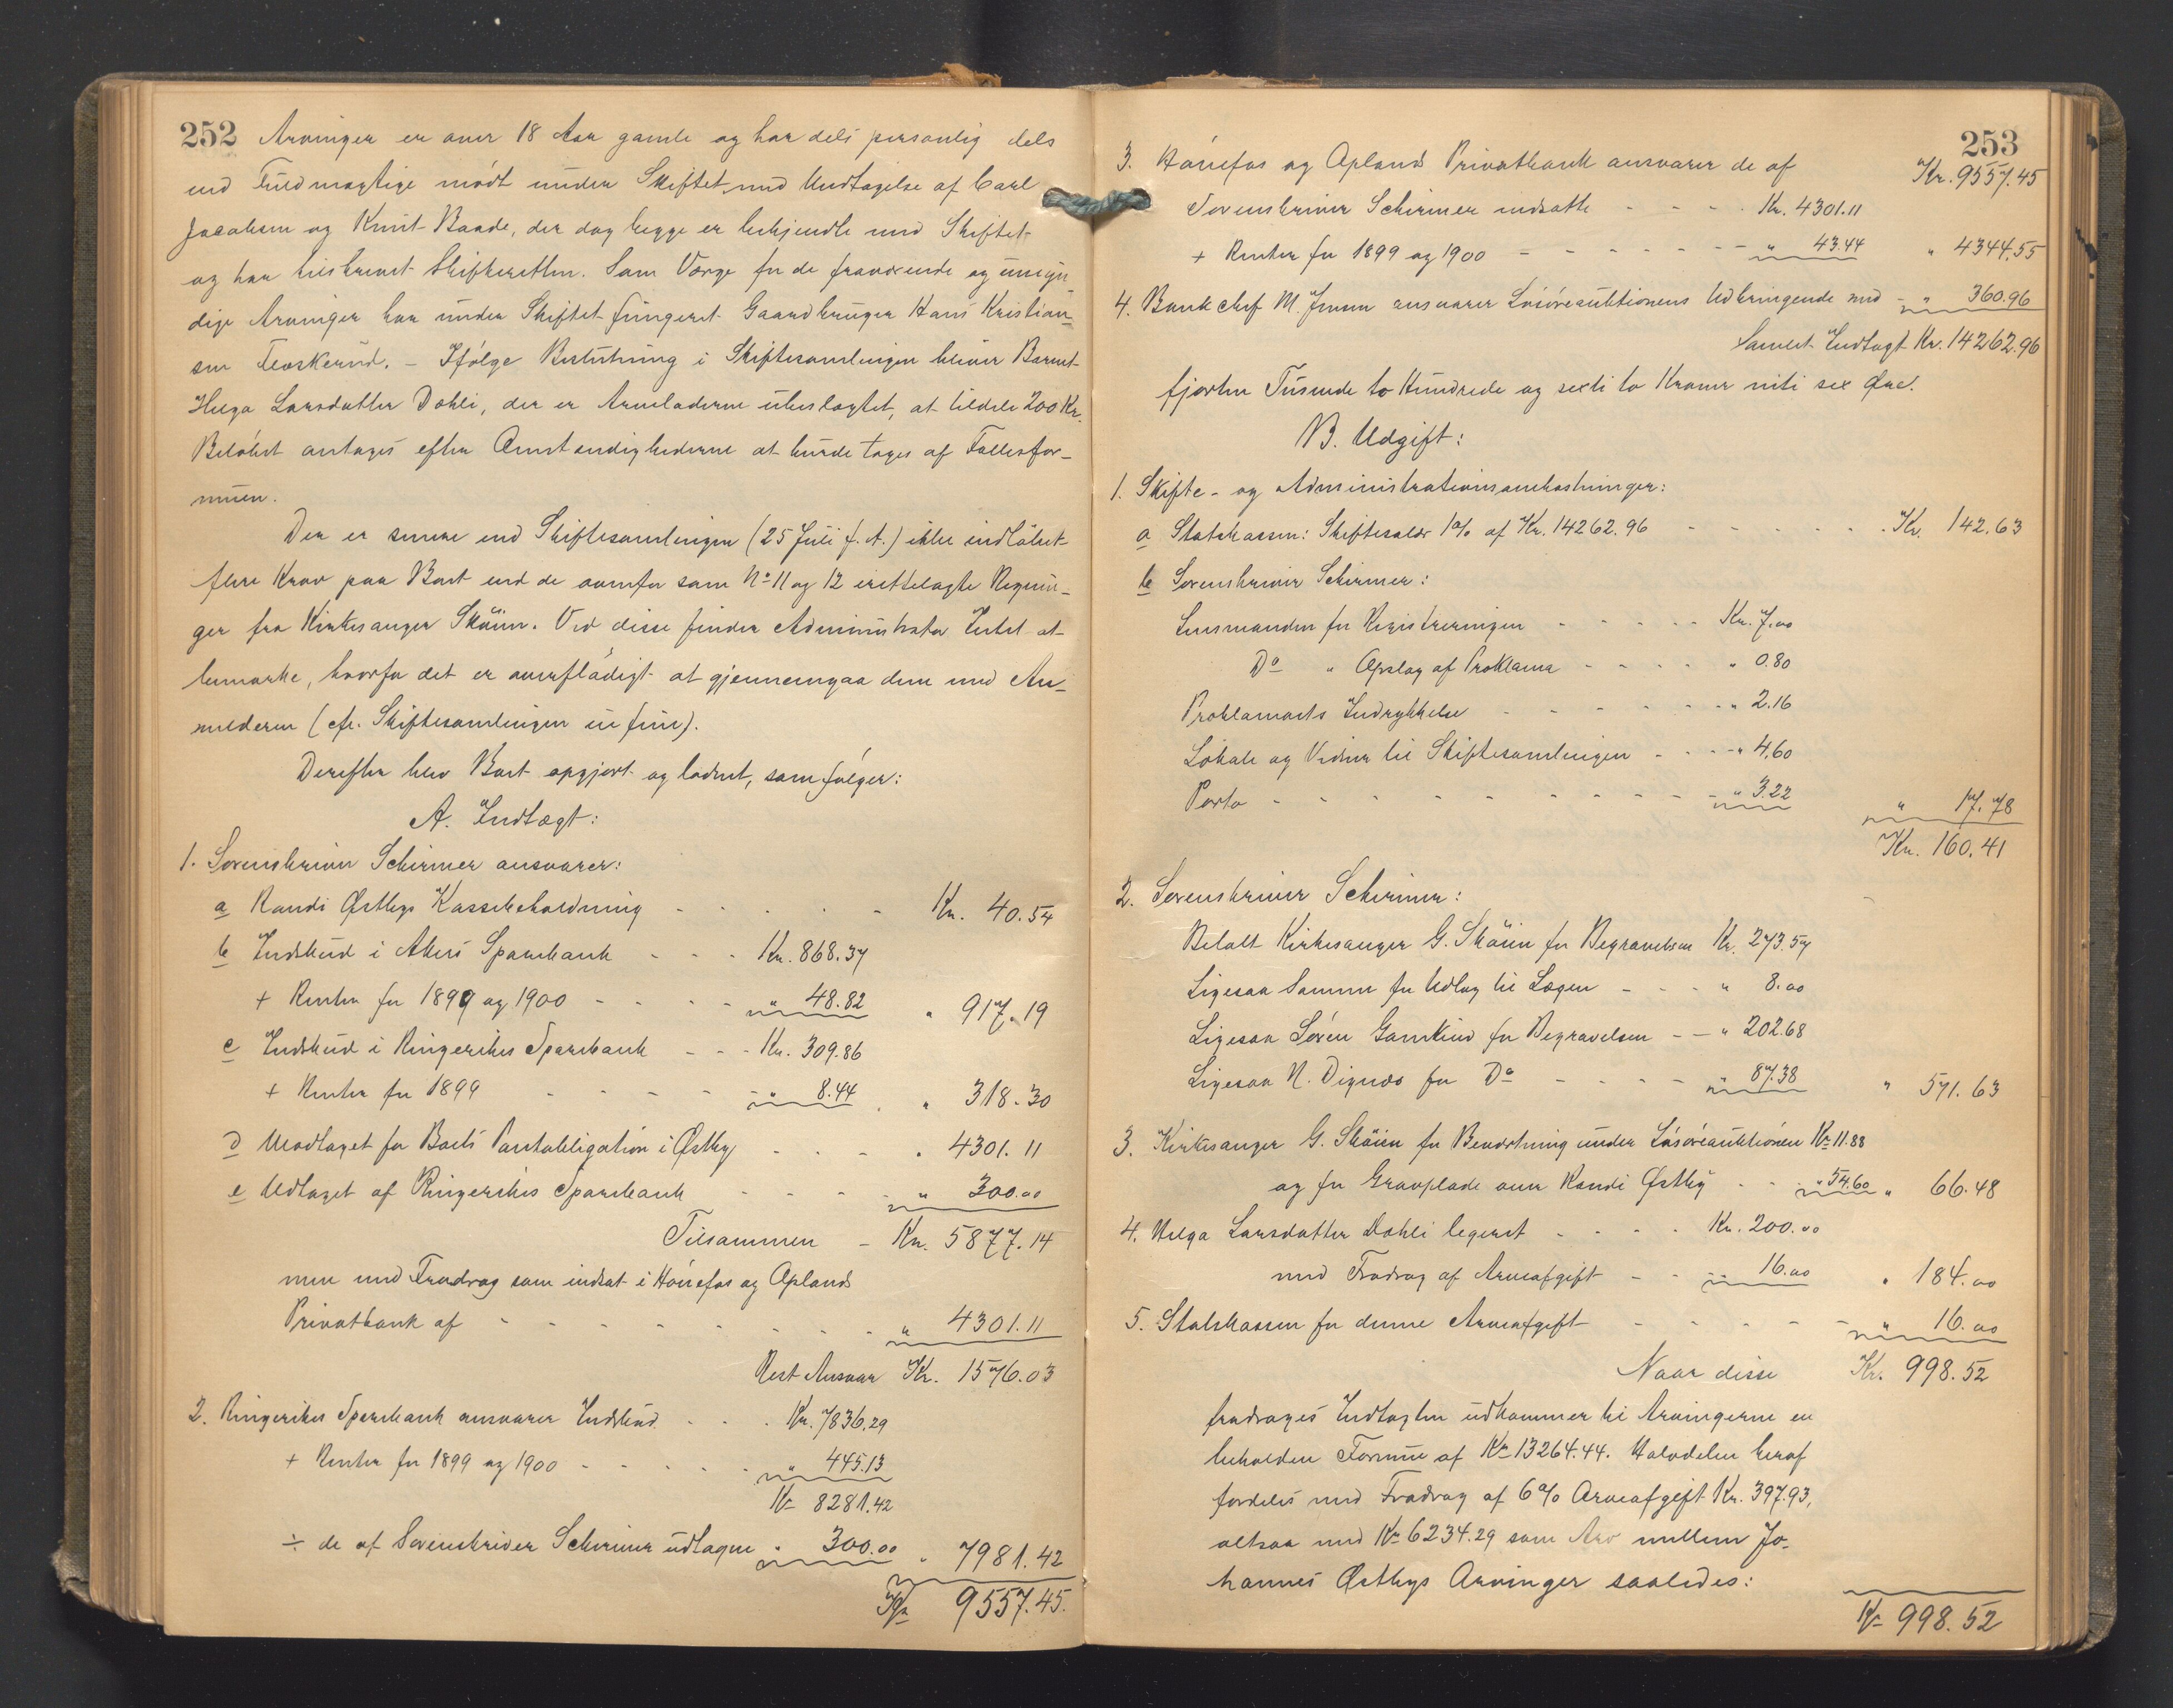 252
Arvinger er over 18 Aar gamle og har dels personlig dels
ved Fuldmægtige mödt under Skiftet med Undtagelse af Carl
Jacobsen og Knut Baade, der dog begge er bekjendte med Skiftet
og har tilskrevet Skifteretten. Som Værge for de fraværende og umyn-
dige Arvinger har under Skiftet fungeret Gaardbruger Hans Kristian-
sen Fæskerud. - Ifölge Beslutning i Skiftesamlingen bliver Barnet
Helga Larsdatter Dahli, der er Arveladerne ubeslægtet, at tildele 200 Kr.
Belöbet antages efter Omstændighederne at burde tages af Fællesfor-
muen.
Der er senere end Skiftesamlingen (25 Juli f. A.) ikke indlöbet
flere Krav paa Boet end de ovenfor som No 11 og 12 irettelagte Regnin-
ger fra Kirkesanger Sköien. Ved disse finder Administrator Intet at
bemærke, hvorfor det er overflödigt at gjennemgaa dem med An-
melderen (cfr. Skiftesamlingen in fine).
Derefter blev Boet opgjort og lodnet, som fölger:
A. Indtægt:
1. Sorenskriver Schirmer ansvarer:
a Randi Østbys Kassebeholdning - - - - Kr. 40.54
b Indskud i Akers Sparebank - - - Kr. 868.37
+ Renter for 1899 og 1900 - - - - " 48.82 " 917.19
c Indskud i Ringerikes Sparebank - - - Kr. 309.86
+ Renter for 1899 - - - - - " 8.44 . " 318.30
d Modtaget for Boets Pantobligation i Østby - - - " 4301.11
e Udtaget af Ringerikes Sparebank - - - - " 300.00
Tilsammen - Kr. 5877.14
men med Fradrag som indsat i Hönefos og Oplands
Privatbank af - - - - - - - - " 4301.11
Rest Ansvar Kr. 1576.03
2. Ringerikes Sparebank ansvarer Indskud - - . Kr. 7836.29
+ Renter for 1899 og 1900 - - - - - " 445.13
Kr 8281.42
÷ de af Sorenskriver Schirmer udtagne " 300.00 " 7981.42
Kr 9557.45.
253
Kr. 9557.45
3. Hönefos og Oplands Privatbank ansvarer de af
Sorenskriver Schirmer indsatte - - - - Kr. 4301.11
+ Renter for 1899 og 1900 - - - - - - - " 43.44 " 4344.55
4. Bankchef M. Jensen ansvarer Lösöreauktionens Udbringende med - " 360.96
Samlet Indtægt Kr. 14262.96
fjorten Tusende to Hundrede og sexti to Kroner niti sex Øre.
B. Udgift:
1. Skifte- og Administrationsomkostninger:
a Statskassen: Skiftesalær 1% af Kr. 14262.96 - - - - - . Kr. 142.63
b Sorenskriver Schirmer:
Lensmanden for Registreringen - - - - - Kr. 7.00
Do " Opslag af Proklama - - - - " 0.80
Proklamaets Indrykkelse - - - - - - - " 2.16
Lokale og Vidner til Skiftesamlingen - - - - " 4.60
Porto - - - - - - - - - - " 3.22 " 17.78
Kr. 160.41
2. Sorenskriver Schirmer:
Betalt Kirkesanger G. Sköien for Begravelsen Kr. 273.57
Ligesaa Samme for Udlæg til Lægen - - - " 8.00
Ligesaa Sören Gamkind for Begravelsen - - " 202.68
Ligesaa N. Dignæs for Do - - - - - " 87.38 " 571.63
3. Kirkesanger G. Sköien for Beværtning under Lösöreauktionen Kr 11.88
og for Gravplade over Randi Østby - - - " 54.60 " 66.48
4. Helga Larsdatter Dahli legeret - - - - Kr. 200.00
med Fradrag af Arveafgift - - - 16.00 " 184.00
5. Statskassen for denne Arveafgift - - - - - " 16.00
Naar disse Kr. 998.52
fradrages Indtægten udkommer til Arvingerne en
beholden Formue af Kr 13264.44. Halvdelen heraf
fordeles med Fradrag af 6% Arveafgift Kr. 397.93,
altsaa med Kr 6234.29 som Arv mellem Jo-
hannes Østbys Arvinger saaledes:
Kr 998.52